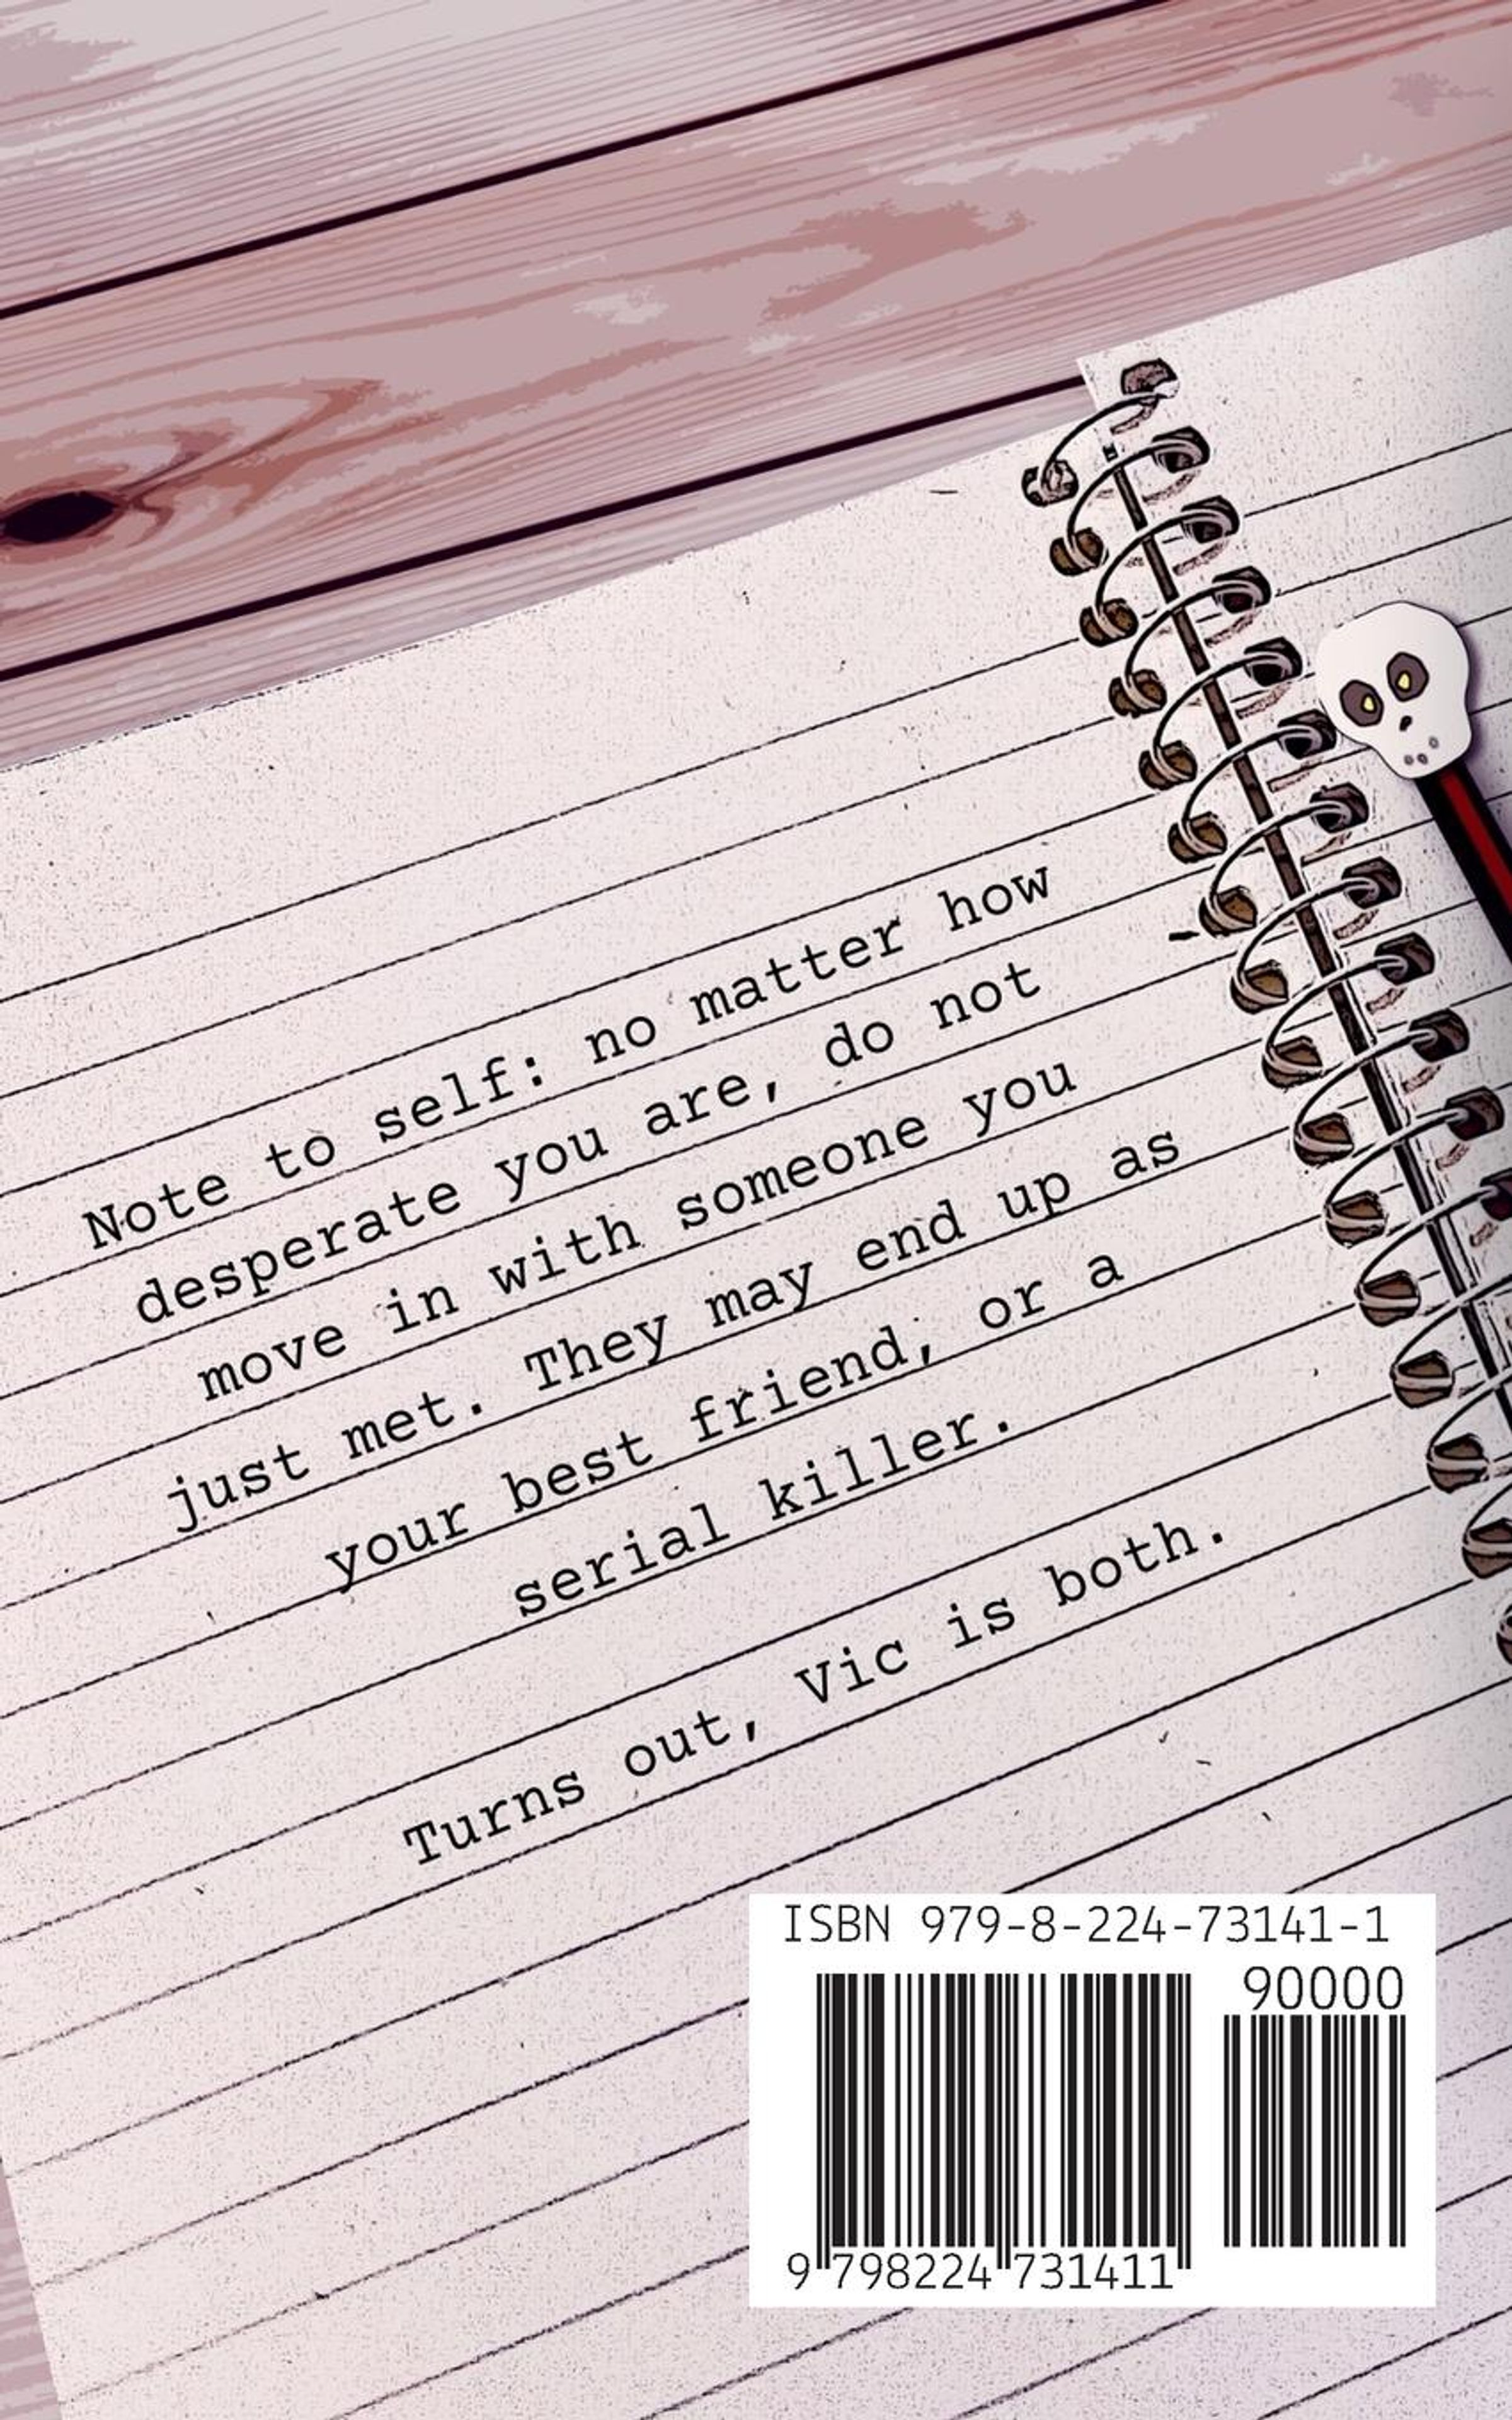 Note to self: no matter how
desperate you are, do not
move in with someone you
just met. They may end up as
your best friend, or a
serial killer.
Turns out, Vic is both.
ISBN 979-8-224-73141-1
90000
9 798224 731411